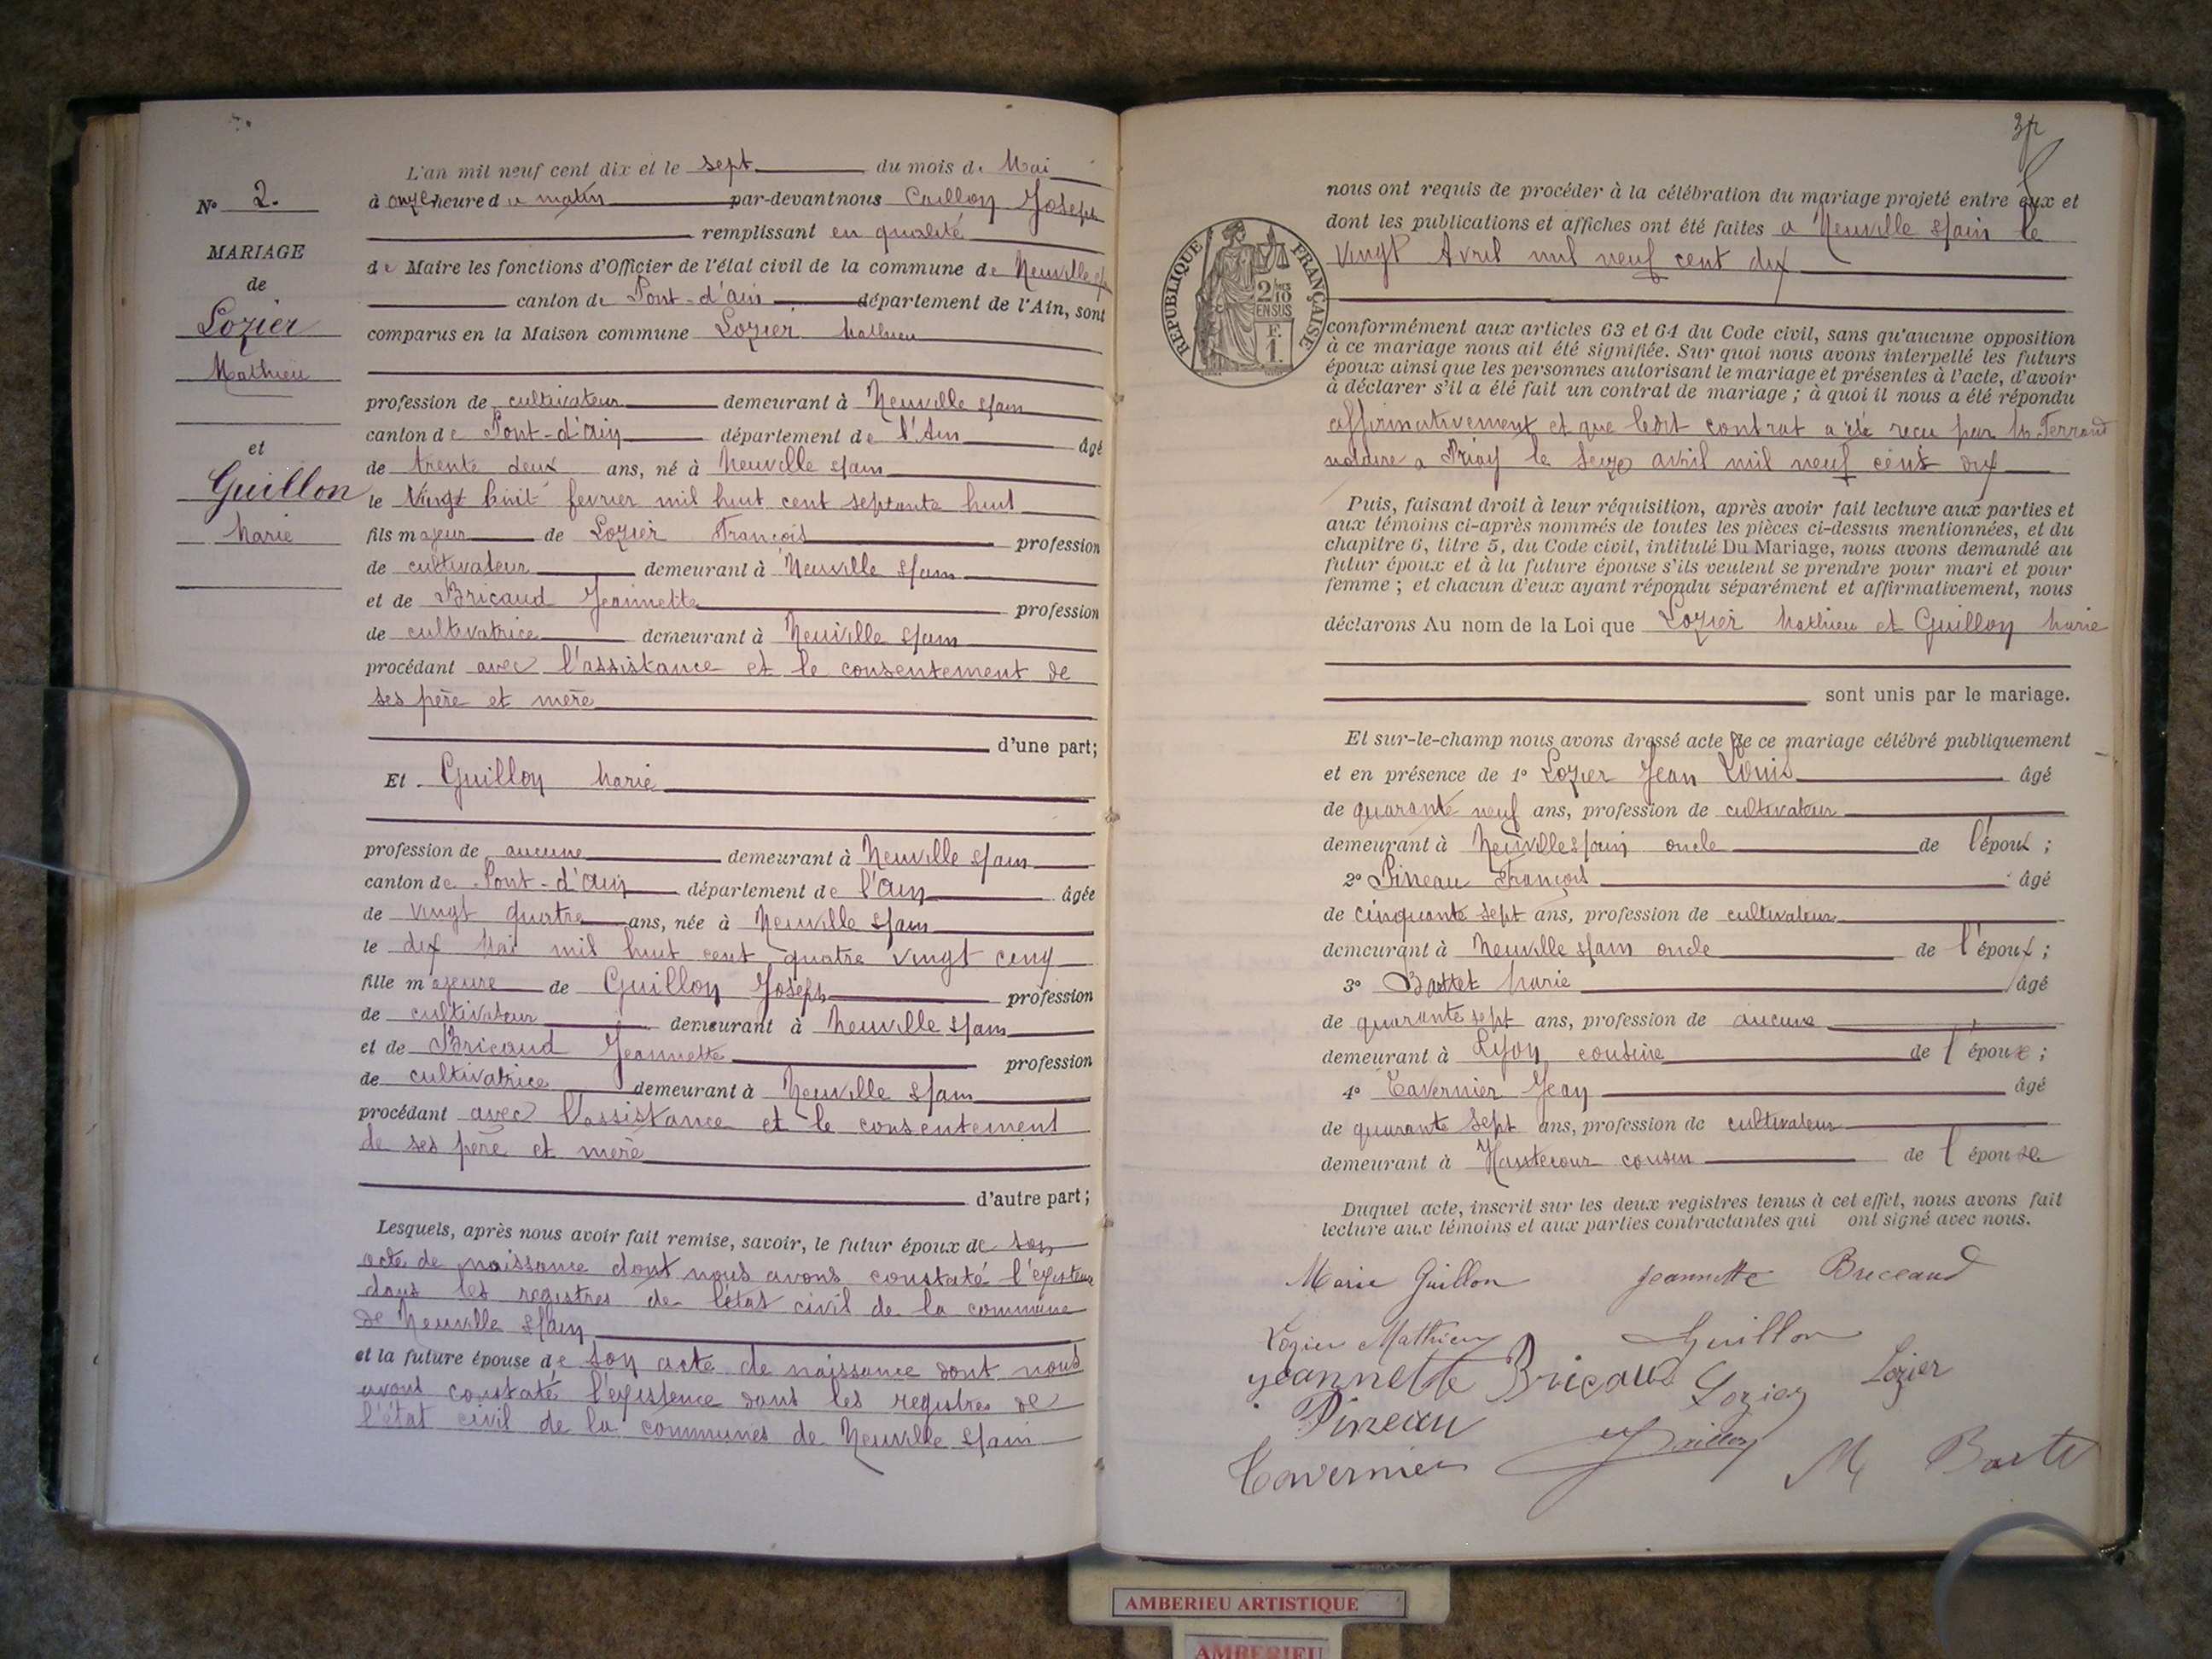 L'an mil neuf cent dix et le sept du mois de Mai
à onze heure du matin par-devant nous Caillon Joseph
remplissant en qualité
de Maire les fonctions d'Officier de l'état civil de la commune de Neuville s/
canton de Pont-d'ain département de l'Ain, sont
comparus en la Maison commune Lozier Mathieu
N° 2.
MARIAGE
de
Lozier
Mathieu
et
Guillon
Marie
profession de cultivateur demeurant à Neuville s/ain
canton de Pont-d'ain département de l'Ain âgé
de trente deux ans, né à Neuville s/ain
le Vingt huit fevrier mil huit cent septante huit
fils majeur de Lozier François profession
de cultivateur demeurant à Neuville s/ain
et de Bricaud Jeannette profession
de cultivatrice demeurant à Neuville s/ain
procédant avec l'assistance et le consentement de
ses père et mère
d'une part;
Et Guillon Marie
profession de aucune demeurant à Neuville s/ain
canton de Pont-d'ain département de l'ain âgée
de vingt quatre ans, née à Neuville s/ain
le dix Mai mil huit cent quatre vingt cinq
fille majeure de Guillon Joseph profession
de cultivateur demeurant à Neuville s/ain
et de Bricaud Jeannette profession
de cultivatrice demeurant à Neuville s/ain
procédant avec l'assistance et le consentement
de ses père et mère
d'autre part;
Lesquels, après nous avoir fait remise, savoir, le futur époux de son
acte de naissance dont nous avons constaté l'existence
dans les registres de l'état civil de la commune
de Neuville s/ain
et la future épouse de son acte de naissance dont nous
avons constaté l'existence dans les registres de
l'état civil de la communes de Neuville s/ain
nous ont requis de procéder à la célébration du mariage projeté entre eux et
dont les publications et affiches ont été faites a Neuville s/ain le
vingt Avril mil neuf cent dix
RÉPUBLIQUE FRANÇAISE
2/10
EN SUS
F.
1.
conformément aux articles 63 et 64 du Code civil, sans qu'aucune opposition
à ce mariage nous ait été signifiée. Sur quoi nous avons interpellé les futurs
époux ainsi que les personnes autorisant le mariage et présentes à l'acte, d'avoir
à déclarer s'il a été fait un contrat de mariage ; à quoi il nous a été répondu
affirmativement et que ledit contrat a été recu par Me Ferrand
notaire a Priay le seize avril mil neuf cent dix
Puis, faisant droit à leur réquisition, après avoir fait lecture aux parties et
aux témoins ci-après nommés de toutes les pièces ci-dessus mentionnées, et du
chapitre 6, titre 5, du Code civil, intitulé Du Mariage, nous avons demandé au
futur époux et à la future épouse s'ils veulent se prendre pour mari et pour
femme ; et chacun d'eux ayant répondu séparément et affirmativement, nous
déclarons Au nom de la Loi que Lozier Mathieu et Guillon Marie
sont unis par le mariage.
Et sur-le-champ nous avons dressé acte de ce mariage célébré publiquement
et en présence de 1° Lozier Jean Louis âgé
de quarante neuf ans, profession de cultivateur
demeurant à Neuville s/ain oncle de l'époux ;
2° Pineau François âgé
de cinquante sept ans, profession de cultivateur
demeurant à Neuville s/ain oncle de l'époux ;
3° Marie âgé
de quarante sept ans, profession de aucune
demeurant à Lyon cousine de l'épouse ;
4° Tavernier Jean âgé
de quarante sept ans, profession de cultivateur
demeurant à Hautecour cousin de l'épouse
Duquel acte, inscrit sur les deux registres tenus à cet effet, nous avons fait
lecture aux témoins et aux parties contractantes qui ont signé avec nous.
Marie Guillon Jeannette Briceaud
Lozier Mathieu Guillon
Jeannette Bricaud Lozier Lozier
Pineau
Tavernier M
AMBERIEU ARTISTIQUE
AMBERIEU